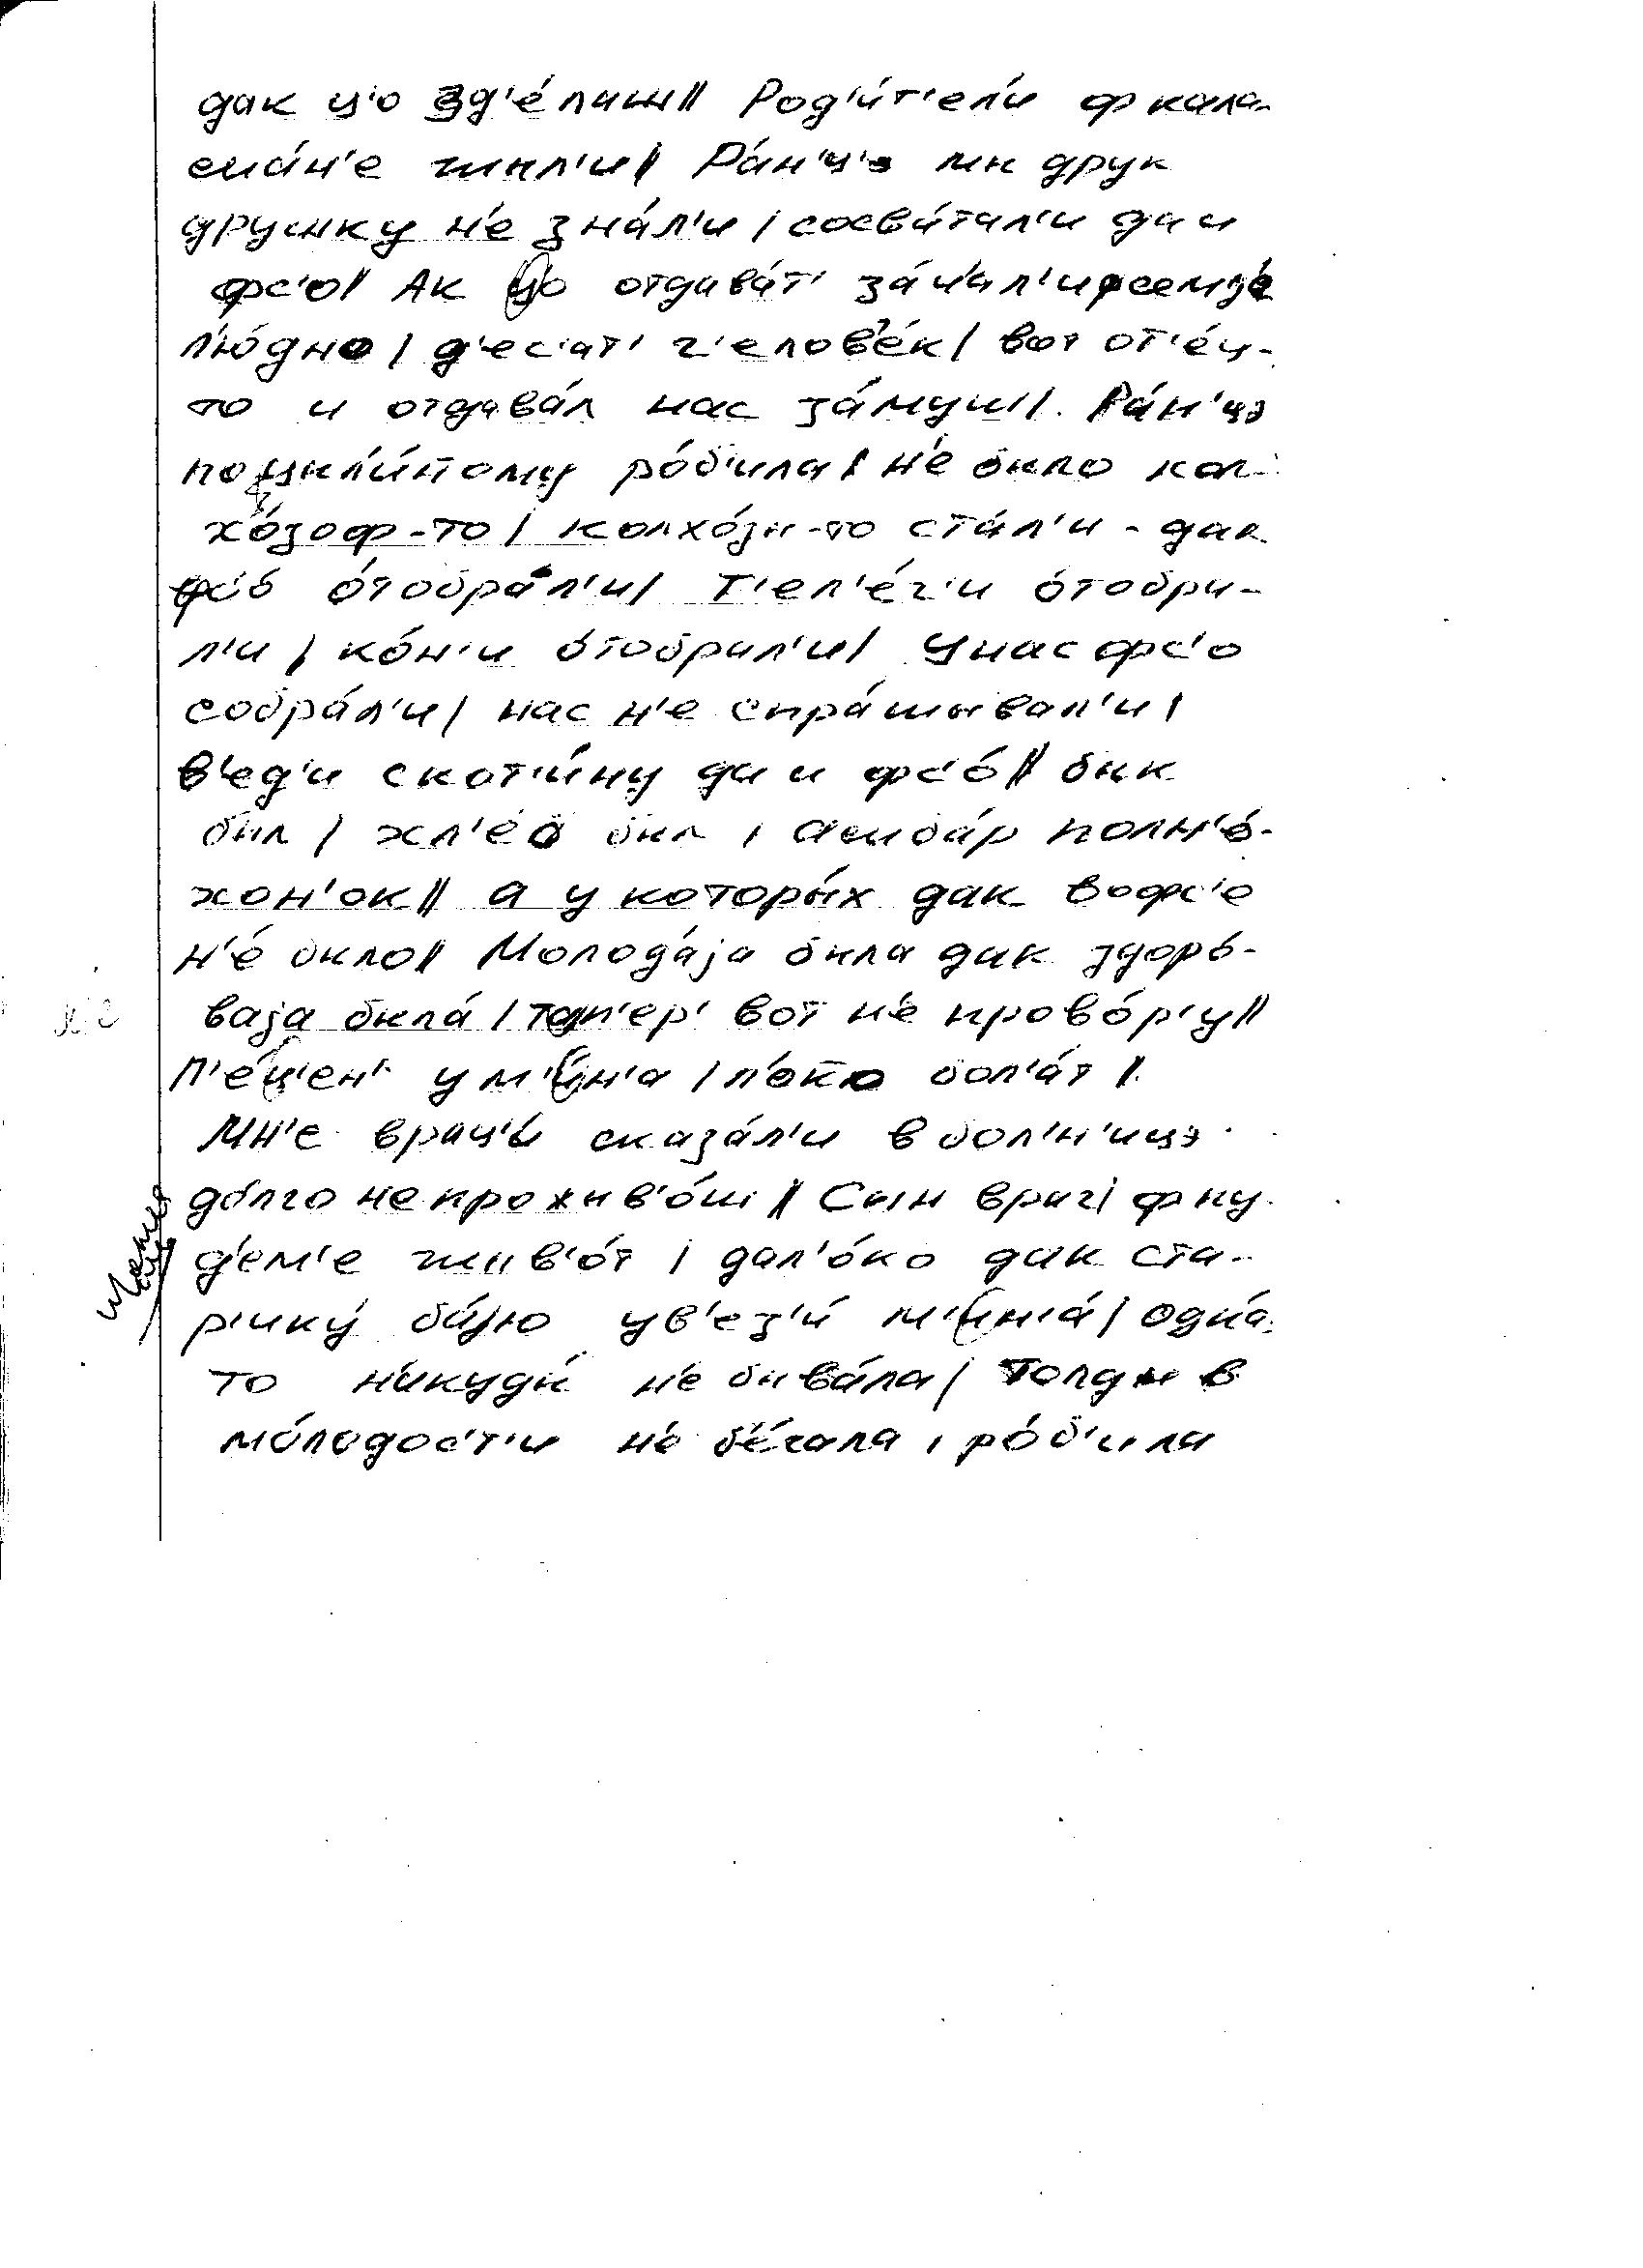 дак ц'о зд'е́лаш|| Род'и́т'ел'и ф кала-
ма́н'е жыл'и|| Ра́н'ц'э мы друк
друшку н'е зна́л'и | сосва́тал'и да и
фс'о| Ак цо отдава́т' за́чал'и
л'ю́дно | д'ес'ат' ч'елов'е́к | вот от'е́ц-
то и отдава́л нас за́муш||. Ра́н'цэ
ро́б'ила | н'е было кол-
хо́зоф-то | колхо́зы-то ста́л'и - дак
фс'о о́тобрал'и| т'ел'е́г'и о́тобра-
л'и | ко́н'и о́тобрал'и| У нас фс'о
собра́л'и | нас н'е спра́шывал'и |
в'ед'и скот'и́ну да и фс'о́ || бык
был | хл'еб был | амба́р полн'о́-
хон'ок || а у которы́х дак вофс'е
н'е́ было|| Молода́jа была дак здоро́-
ваjа была́ | т'еп'ер' вот н'е прово́р'у||
П'е́ц'ен' у м'и́н'а | бол'а́т |.
Мн'е врац'и́ сказа́л'и в бол'н'ицэ
до́лго не прожыв'о́ш || Сын врач| ф ку-
д'ем'е жыв'о́т | дал'о́ко дак ста-
р'ику́ ба́jу ув'ез'и́ м'ин'а́ | одна́-
то н'икуды́ н'е быва́ла | толды в
мо́лодос'т'и н'е б'е́гала | ро́б'ила